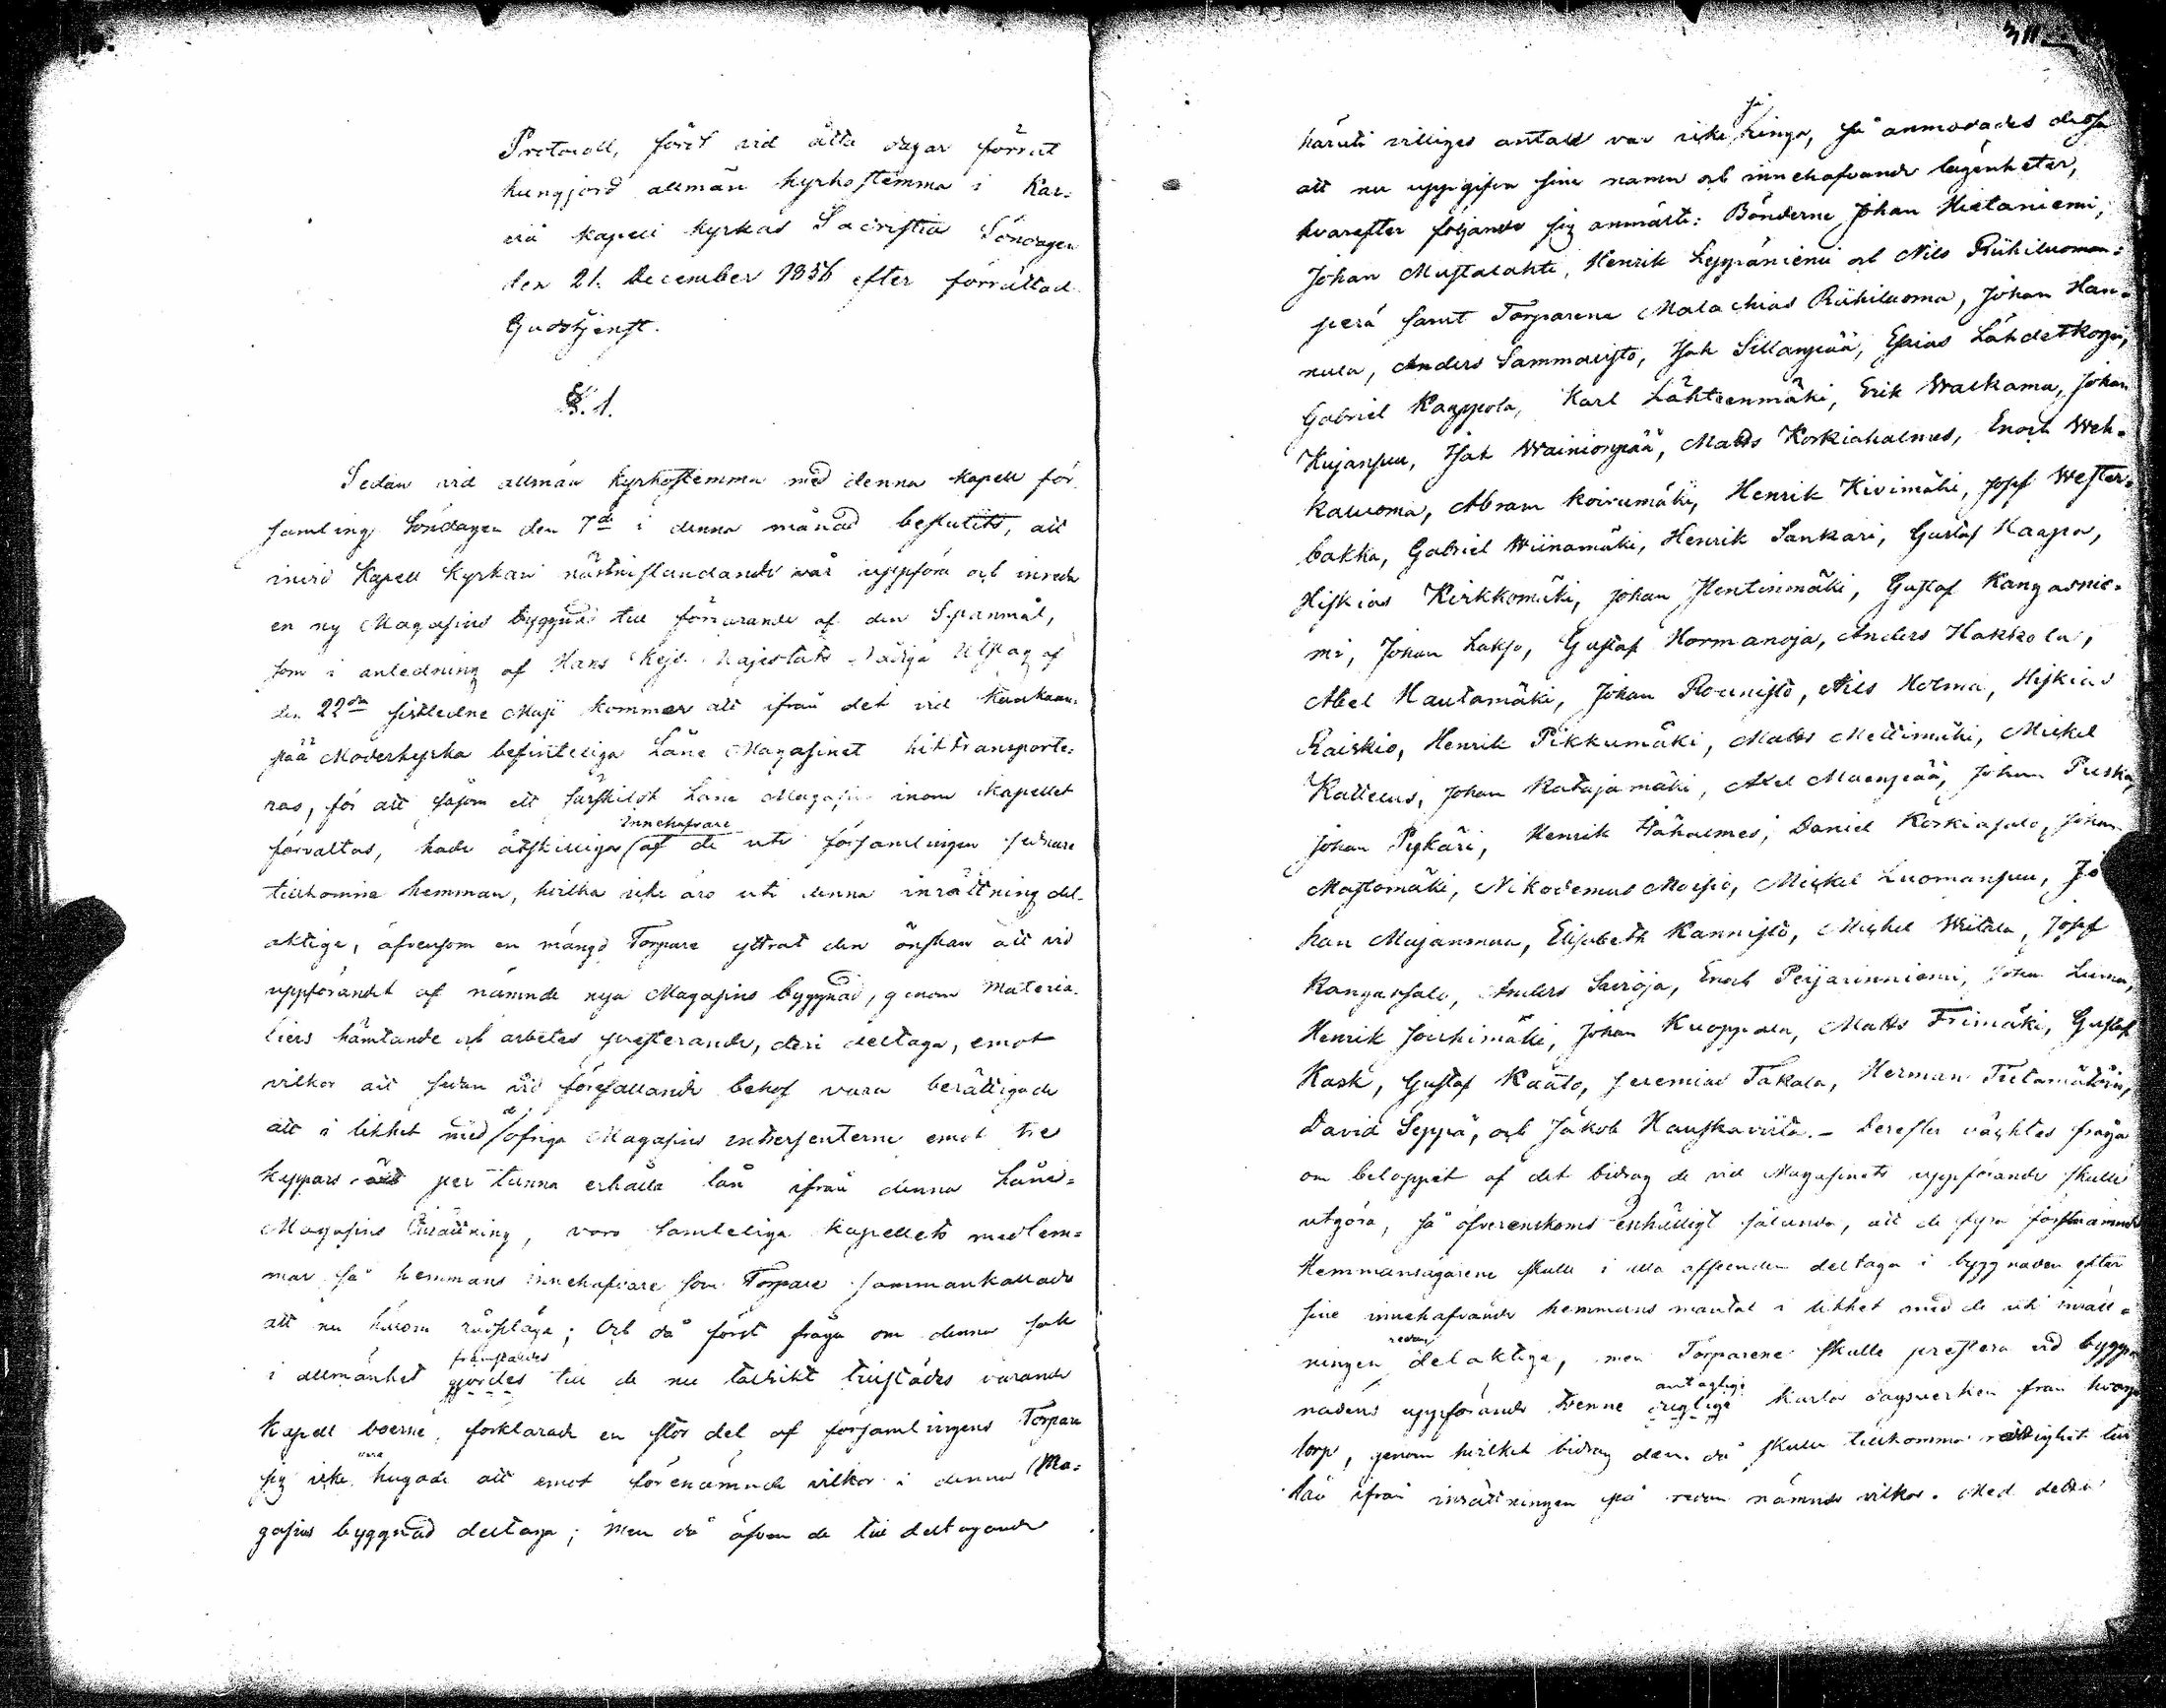 Protocoll, fördt vid åtta dagar förrut
kungjord allmän kyrkostemma i Kar-
via Kapell kyrkas Sacristia Söndagen
den 21. December 1856 efter förrättad
Gudstjenst.
§. 1.
Sedan vid allmän kyrkostemma med denna Kapell för-
samling Söndagen den 7de i denna månad beslutits, att
invid Kapell kyrkan nästinstundande vår uppföra och inreda
en ny Magasins byggnad till förvarande af den Spanmål,
som i anledning af Hans Kejs. Majestäts Nådiga Utslag af
den 22dra sistledne Maji kommer att ifrån det vid Kankaan-
pää Moderkyrka befinteliga Låne Magasinet hittransporte-
ras, för att såsom ett särskildt Låne Magasin inom Kapellet
Innehafvare
förvaltas, hade åtskilliga af de uti församlingen sednare
tillkomne hemman, hvilka icke äro uti denna inrättning del-
aktige, äfvensom en mängd Torpare yttrat den önskan att vid
uppförandet af nämnde nya Magasins byggnad, genom Materia-
liers hämtande och arbetes presterande, deri deltaga, emot
vilkor att sedan vid förefallande behof vara berättigade
de
att i likhet med öfriga Magasins intressenterne emot tre
kappars per tunna erhålla lån ifrån denna Låne-
Magasins Inrättning, voro samteliga Kapellets medlem-
mar så hemmans innehafvare som Torpare sammankallade
att nu härom rådpläga; Och då först fråga om denna sak
framstäldes
i allmänhet gjordes till de nu talrikt tillstädes varande
Kapell boerne, förklarade en stor del af församlingens Torpare
vara
sig icke hugade att emot förenämnde vilkor i denna Ma-
gasins byggnad deltaga; Men då äfven de till deltagande
311
så
häruti villiges antal var icke ringa, så anmodades dessa
att nu uppgifva sine namn och innehafvande lägenheter,
hvarefter följande sig anmälte: Bönderne Johan Hietaniemi,
Johan Mustalahti, Henrik Leppäniemi och Nils Riihiluoman-
perä samt Torparene Malachias Riihiluoma, Johan Han-
nula, Anders Sammalisto, Isak Sillanpää, Esaias Lähdetkorpi,
Gabriel Kauppola, Karl Lähteenmäki, Erik Walkama, Johan
Kujanpuu, Isak Wainionpää, Matts Korkiahalmes, Enoch Weh-
kaluoma, Abram Koivumäki, Henrik Kivimäki, Josef Wester-
backa, Gabriel Wiinamäki, Henrik Sankari, Gustaf Haapa,
Hiskias Kirkkomäki, Johan Hentinmäki, Gustaf Kangasnie-
mi, Johan Lakso, Gustaf Hormanoja, Anders Hakkola,
Abel Hautamäki, Johan Rounisto, Nils Holma, Hiskias
Raiskio, Henrik Pikkumäki, Matts Mettimäki, Mickel
Kattelus, Johan Katajamäki, Abel Maenpää, Johan Puska,
Johan Pykäri, Henrik Isohalmes, Daniel Korkiasalo, Johan
Mastomäki, Nikodemus Moisio, Mickel Luomanpuu, Jo-
han Majanmaa, Elisabeth Kannisto, Mickel Wiitala, Josef
Kangassalo, Anders Saioja, Enoch Peijariniemi, Johan Luoma,
Henrik Jouhimäki, Johan Kuoppala, Matts Frimäki, Gustaf
Kask, Gustaf Kääto, Jeremias Takala, Herman
David Seppä, och Jakob Hauskaviita. - Derefter väcktes fråga
om beloppet af det bidrag de vid Magasinets uppförande skulle
utgöra, så öfverenskoms enhälligt sålunda, att de fyra förstnämnde
Hemmansägarene skulle i alla afseenden deltaga i byggnaden efter
sine innehafvande hemmans mantal i likhet med de uti inrätt-
redan
ningen delaktige, men Torparene skulle prestera vid bygg-
antaglige
nadens uppförande trenne dugliga karla dagsverken från hvarje
torp, genom hvilket bidrag dem då skulle tillkomma rättighet till
lån ifrån inrättningen på redan nämnde vilkor. Med detta